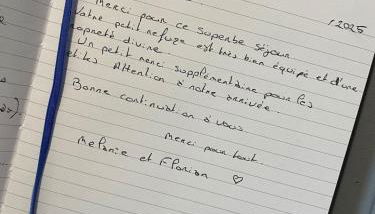 /2025
Merci pour ce superbe séjour
Votre petit refuge est très bien équipé et d'une
propreté divine
Un petit merci supplémentaire pour les
petites Attention à notre arrivée
Bonne continuation à vous
Merci pour tout
Melanie et Florian ♡